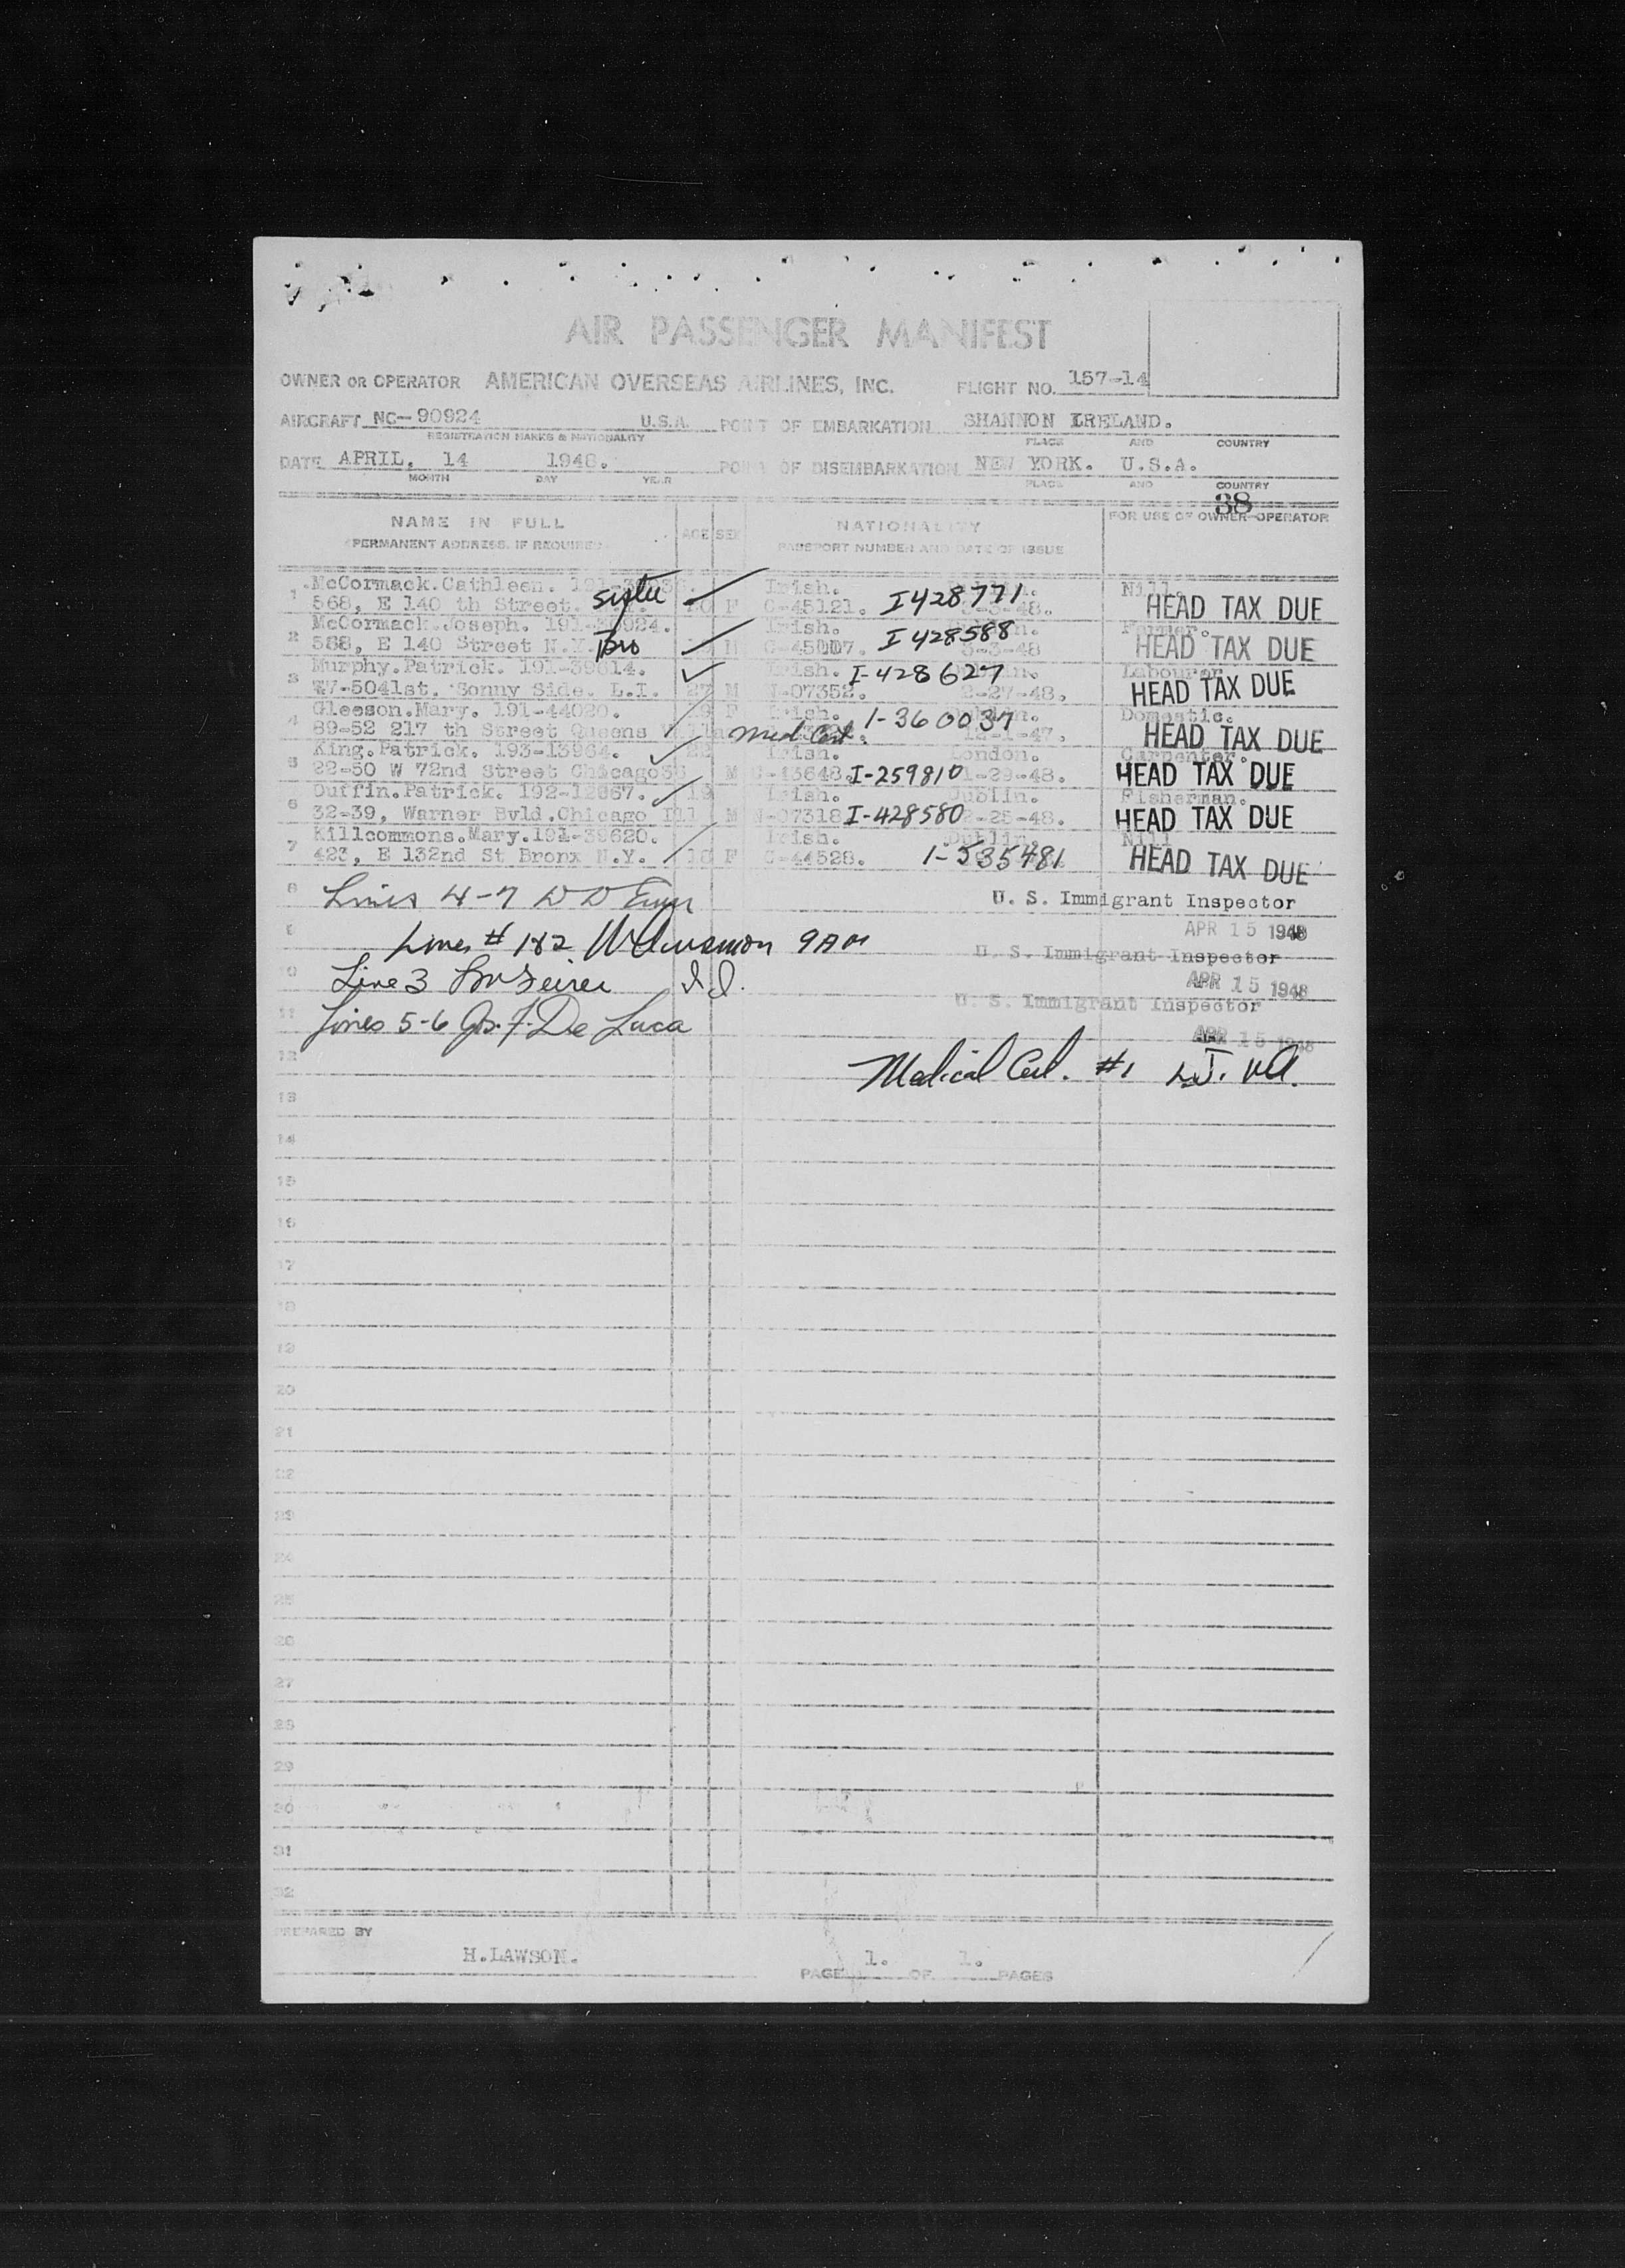 AIR PASSENGER MANIFEST
OWNER OR OPERATOR AMERICAN OVERSEAS AIRLINES, INC. FLIGHT NO. 157-14
AIRCRAFT NC-90924 U.S.A. POINT OF EMBARKATION SHANNON IRELAND.
REGISTRATION MARKS & NATIONALITY PLACE AND COUNTRY
DATE APRIL. 14 1948. POINT OF DISEMBARKATION NEW YORK. U.S.A.
MONTH DAY YEAR PLACE AND COUNTRY
38
NAME IN FULL AGE SEX NATIONALITY FOR USE OF OWNER-OPERATOR
PERMANENT ADDRESS, IF REQUIRED PASSPORT NUMBER AND DATE OF ISSUE
McCormack.Cathleen. Irish. Nill.
1 568, E 140 th Street. sister F C-45121. I428771 3-3-48. HEAD TAX DUE
McCormack.Joseph. 191-38924. Irish. Farmer.
2 568, E 140 Street N.Y. Bro M I428588 3-3-48 HEAD TAX DUE
Murphy.Patrick. 191-39614. Irish. I-428627 Labourer
3 47-5041st. Sonny Side. L.I. 27 M N-07352. 2-27-48. HEAD TAX DUE
Gleeson.Mary. 191-44020. 19 F Irish. 1-360037 Domestic.
4 89-52 217 th Street Queens Med Cert. HEAD TAX DUE
King.Patrick. 193-13964. 22 Irish. London. Carpenter.
5 22-50 W 72nd Street Chicago36 M I-259810 1-29-48. HEAD TAX DUE
Duffin.Patrick. 192-12867. 19 Irish. Dublin. Fisherman.
6 32-39, Warner Bvld.Chicago Ill M N-07318 I-428580 2-25-48. HEAD TAX DUE
Killcommons.Mary.191-39620. Irish. Dublin. Nill
7 423, E 132nd St Bronx N.Y. 18 F C-44528. 1-535481 HEAD TAX DUE
8 Lines 4-7 U. S. Immigrant Inspector
9 Lines # 1&2 9AM APR 15 1948
U. S. Immigrant Inspector
10 Line 3 I.I. APR 15 1948
U. S. Immigrant Inspector
11 Lines 5-6 Jos. F. De Luca APR 15 1948
12 Medical Cert. #1
13
14
15
16
17
18
19
20
21
22
23
24
25
26
27
28
29
30
31
32
PREPARED BY
H.LAWSON.
PAGE 1. OF 1. PAGES